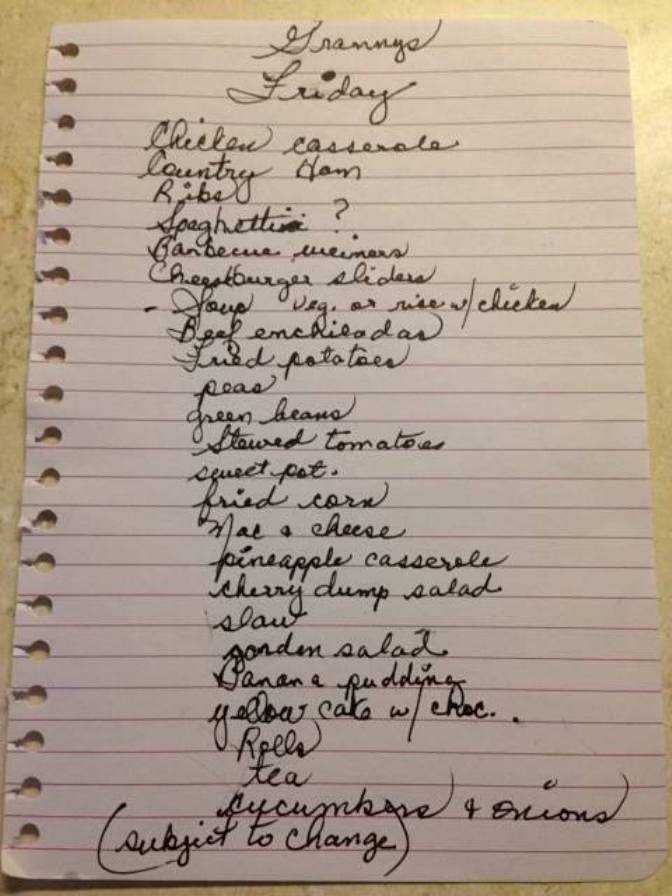 Grannys
Friday
Chicken casserole
Country Ham
Ribs
Spaghetti ?
Barbecue weiners
Cheeseburger sliders
- Soup veg. or rise w/ chicken
Beef enchiladas
Fried potatoes
peas
green beans
Stewed tomatoes
sweet pot.
fried corn
Mac & cheese
pineapple casserole
cherry dump salad
slaw
garden salad
Banana pudding
yellow cake w/ choc. .
Rolls
tea
cucumbers & onions
(subject to change)